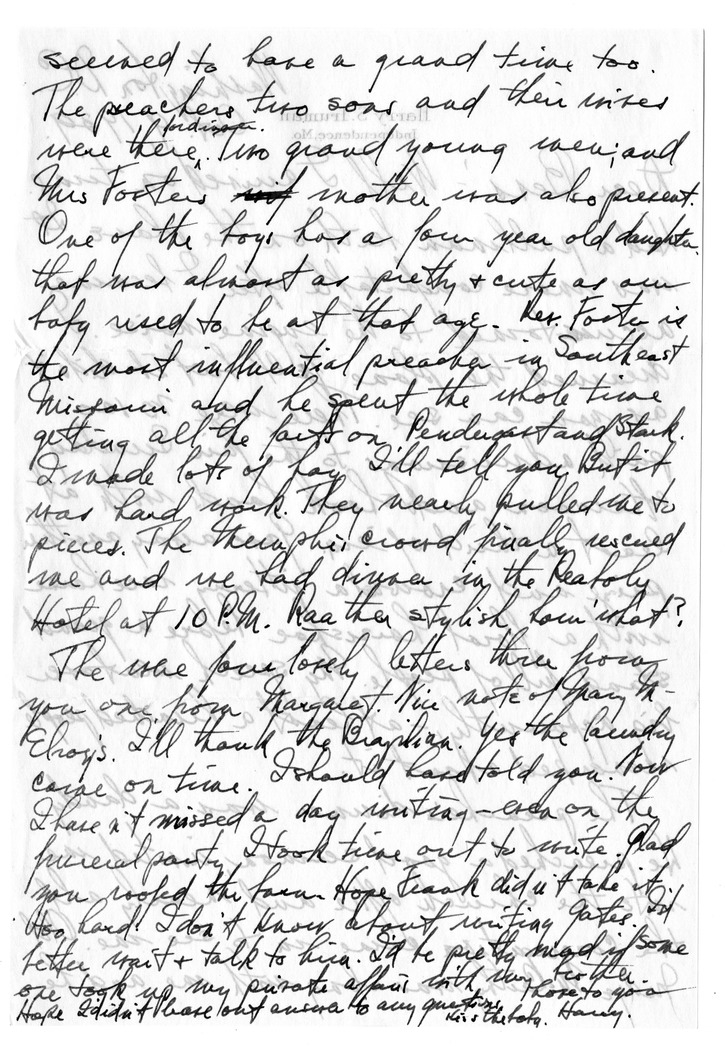 seemed to have a grand time too.
The preachers two sons and their wives
were there, for dinner. Two grand young men; and
Mrs Fosters mother was also present.
One of the boys has a four year old daughter
that was almost as pretty & cute as our
baby used to be at that age. Rev. Foster is
the most influential preacher in Southeast
Missouri and he spent the whole time
getting all the facts on Pendergast and Stark.
I made lots of hay I'll tell you. But it
was hard work. They nearly pulled me to
pieces. The Memphis crowd finally rescued
me and we had dinner in the Peabody
Hotel at 10 P.M. Raather stylish hour what?
The were four lovely letters three from
you one from Margaret. Nice note of Mary M-
Elroy's. I'll thank the Brazilian. Yes the laundry
came on time. I should have told you. Now
I haven't missed a day writing - even on the
funeral party I took time out to write. Glad
you roofed the barn. Hope Frank didn't take it
too hard. I don't know about writing Gates. I'd
better wait & talk to him. I'd be pretty mad if some
one took up my private affairs with my brother.
Hope I didn't leave out answer to any questions. Love to you
Kiss the baby. Harry.
Harry S. Truman
Independence, Mo.